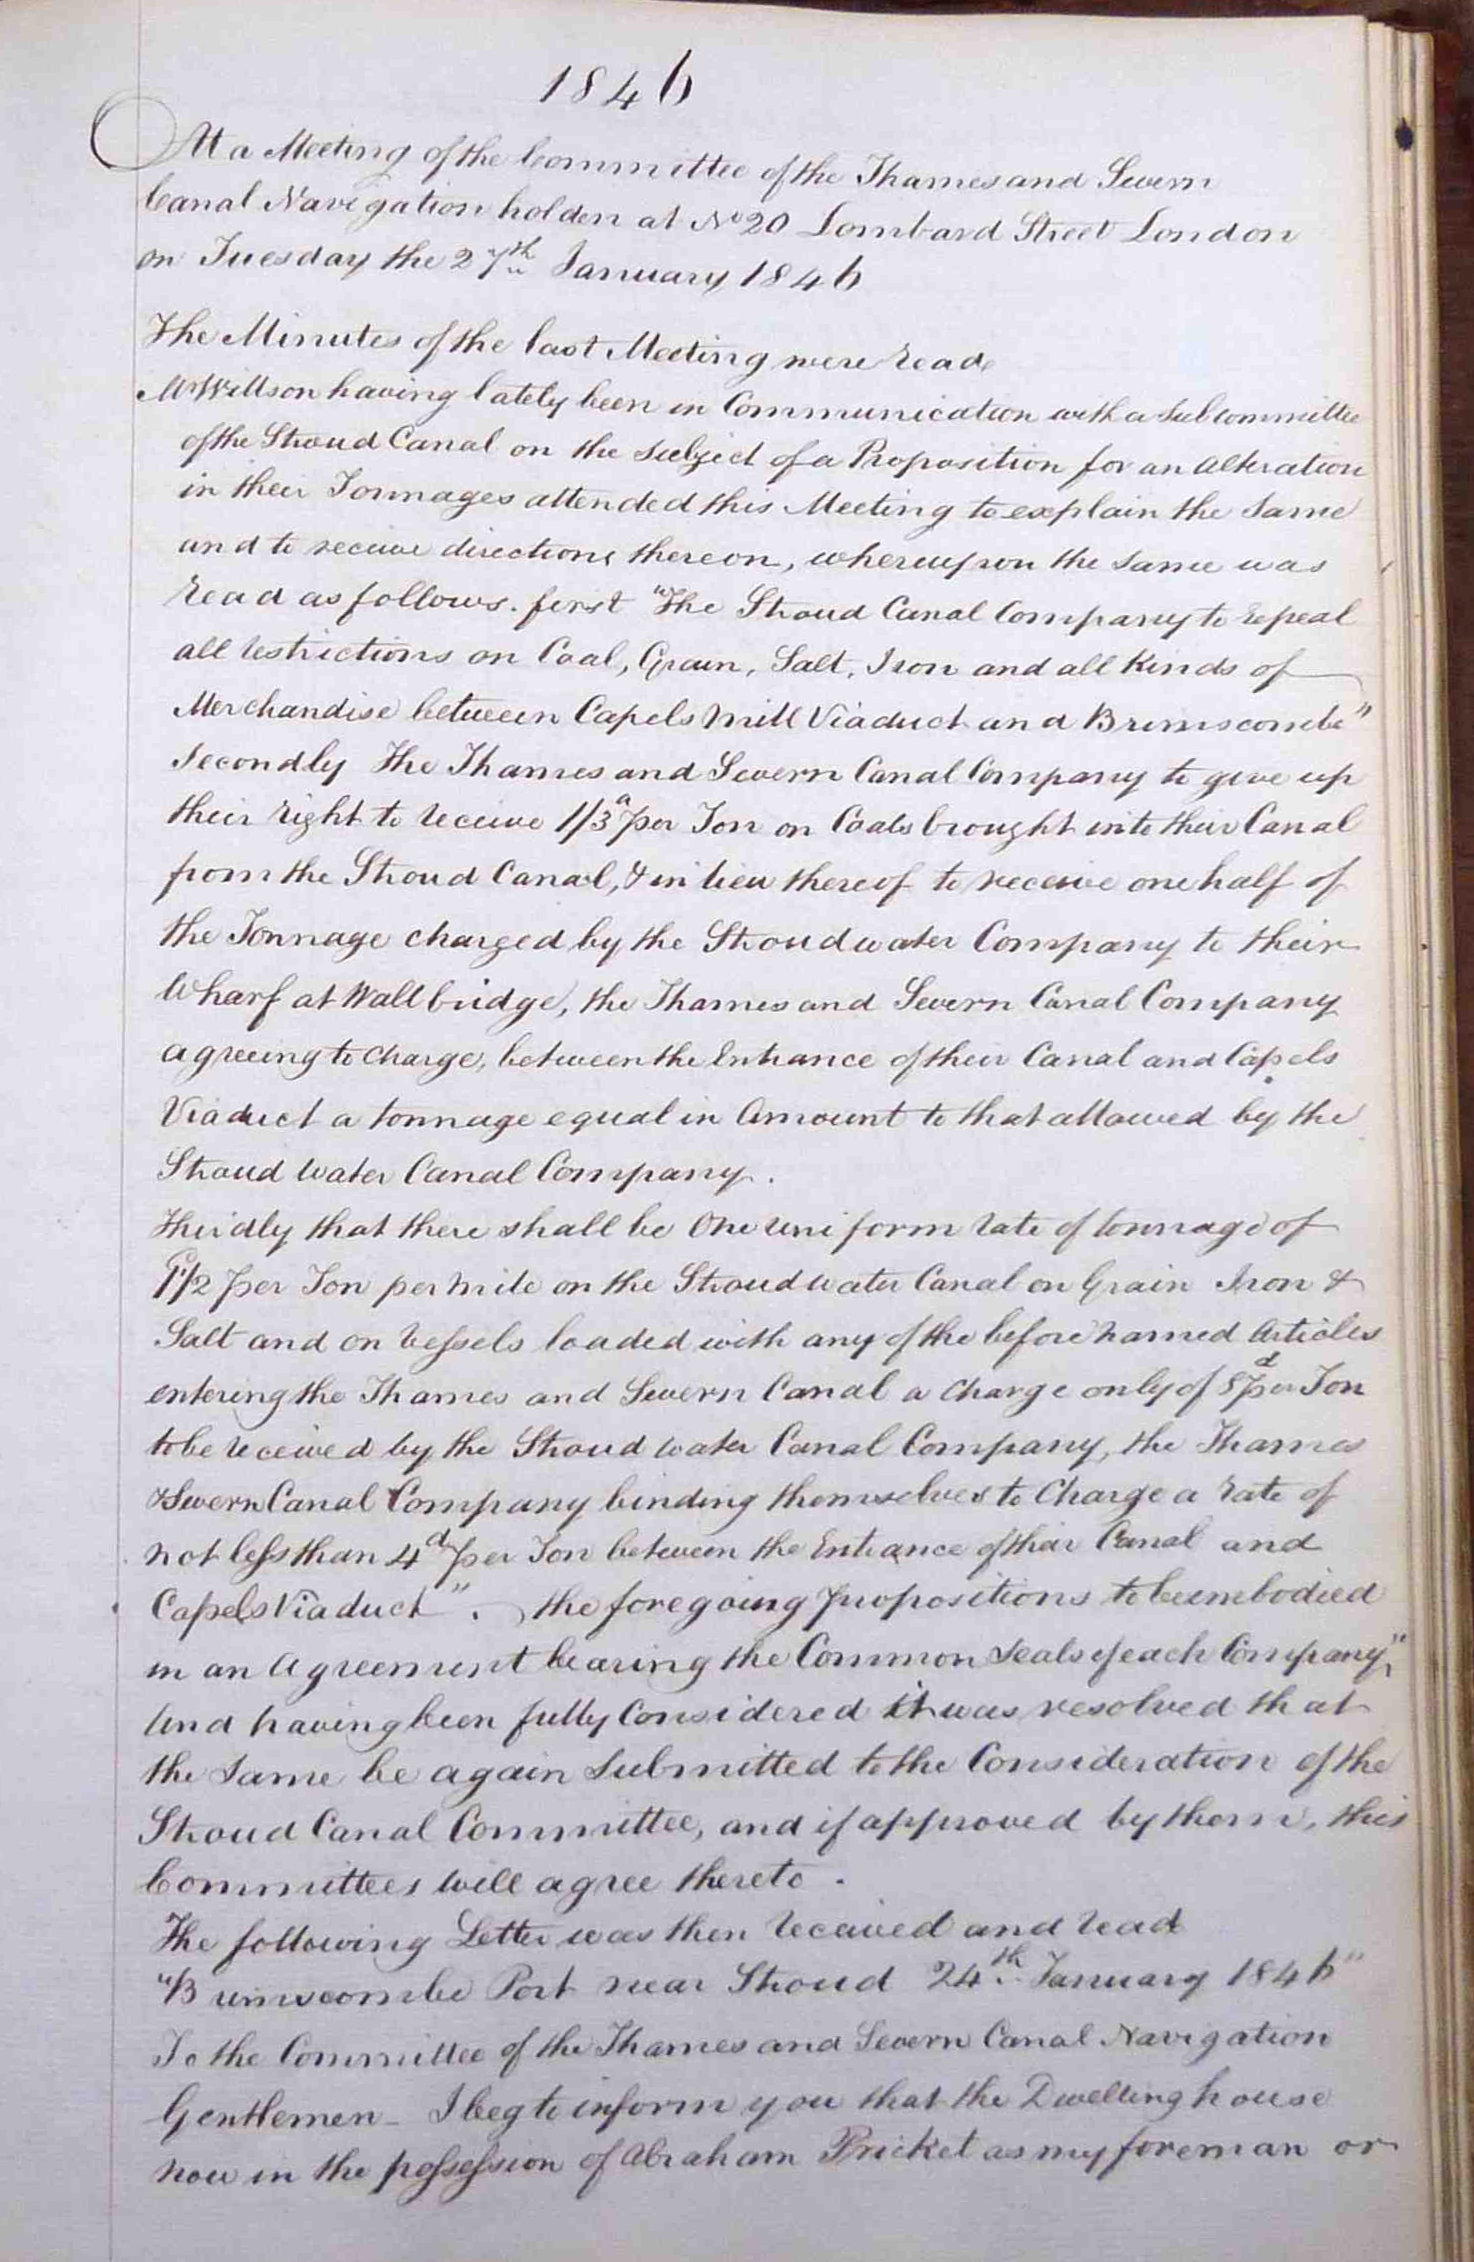 1846
At a Meeting of the Committee of the Thames and Severn
Canal Navigation holden at No 20 Lombard Street London
on Tuesday the 27th January 1846
The Minutes of the last Meeting were read
Mr Willson having lately been in Communication with a Subcommittee
of the Stroud Canal on the subject of a Proposition for an alteration
in their Tonnages attended this Meeting to explain the same
and to receive directions thereon, whereupon the same was
read as follows. first "The Stroud Canal Company to repeal
all restrictions on Coal, Grain, Salt, Iron and all Kinds of
Merchandise between Capels Mill Viaduct and Brimscombe"
Secondly The Thames and Severn Canal Company to give up
their right to receive 1/3d per Ton on Coals brought into their Canal
from the Stroud Canal, & in lieu thereof to receive one half of
the Tonnage charged by the Stroudwater Company to their
Wharf at Wallbridge, the Thames and Severn Canal Company
agreeing to charge, between the Entrance of their Canal and Capels
Viaduct a tonnage equal in Amount to that allowed by the
Stroudwater Canal Company.
Thirdly that there shall be One uniform rate of tonnage of
1d/2 per Ton per Mile on the Stroudwater Canal on Grain Iron &
Salt and on Vessels loaded with any of the before named Articles
entering the Thames and Severn Canal a charge only of 8d per Ton
to be received by the Stroudwater Canal Company, the Thames
& Severn Canal Company binding themselves to Charge a rate of
not less than 4d per Ton between the Entrance of their Canal and
Capels Viaduct". the foregoing propositions to be embodied
in an Agreement bearing the Common Seals of each Company"
And having been fully Considered it was resolved that
the same be again submitted to the Consideration of the
Stroud Canal Committee, and if approved by them, this
Committees will agree thereto.
The following Letter was then received and read
"Brimscombe Port near Stroud 24th January 1846"
To the Committee of the Thames and Severn Canal Navigation
Gentlemen - I beg to inform you that the Dwelling house
now in the possession of Abraham Pricket as my foreman or